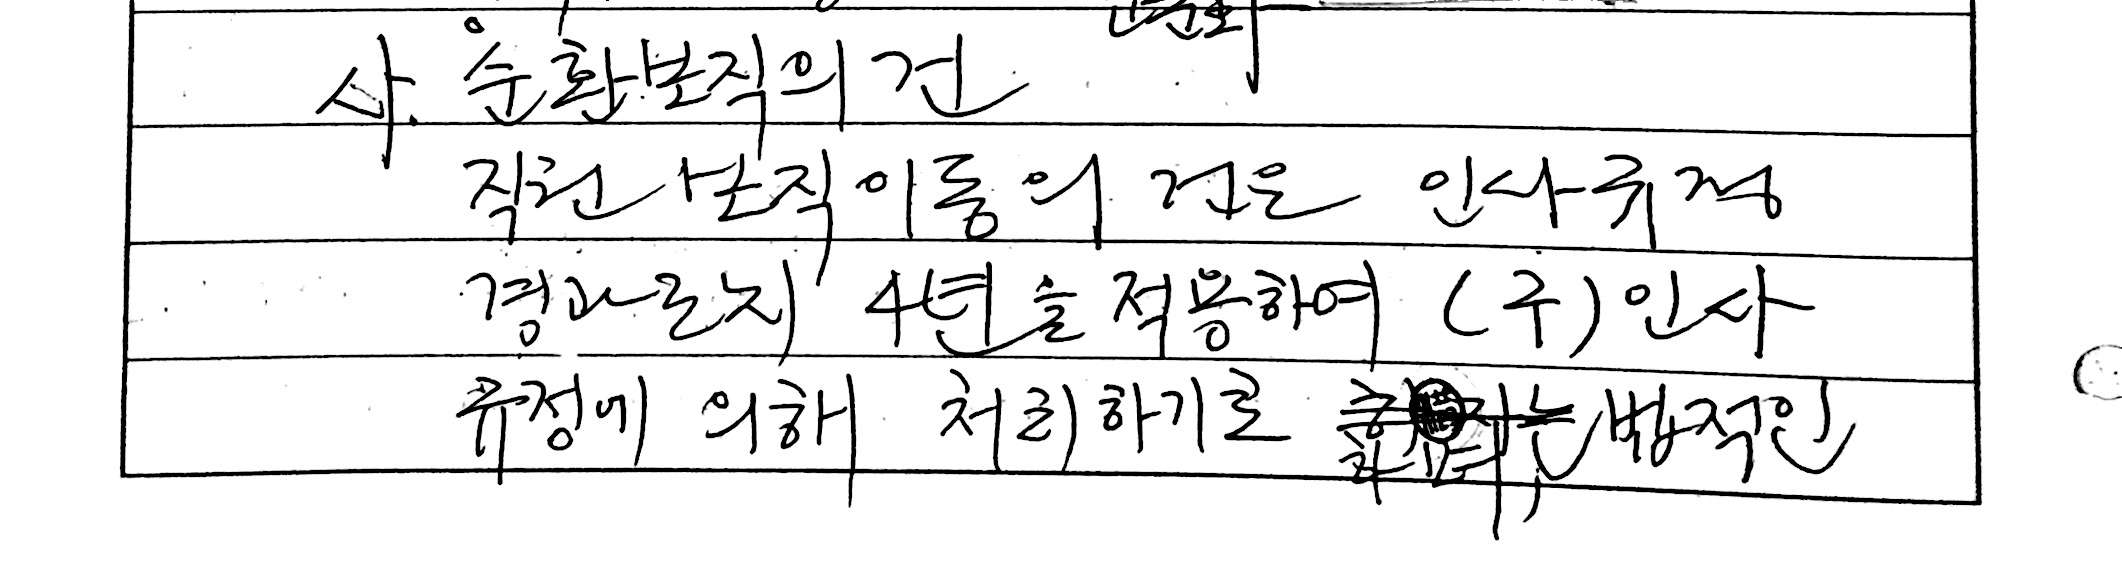 사. 순환보직의 건
직원 보직이동의 건은 인사규정
경과조치 4년을 적용하여 (구) 인사
규정에 의해 처리하기로 법적인